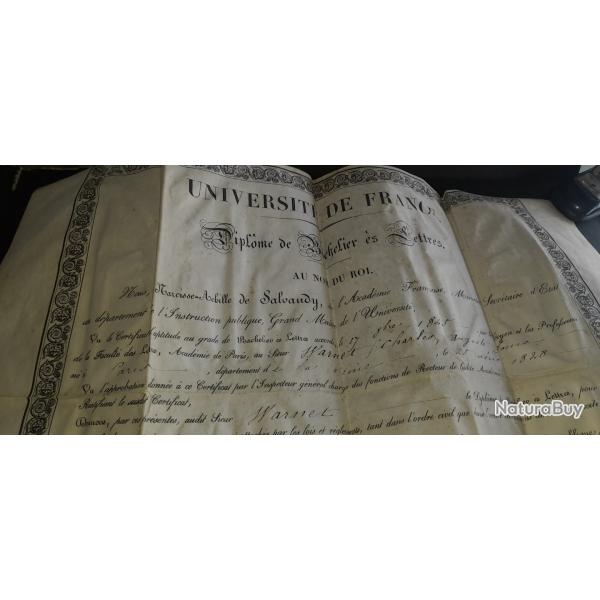 UNIVERSITÉ DE FRANCE.
Diplôme de Bachelier ès Lettres.
AU NOM DU ROI.
Nous, Narcisse-Achille de Salvandy, de l'Académie Française, Ministre Secrétaire d'État
au département de l'Instruction publique, Grand Maître de l'Université,
Vu le Certificat d'aptitude au grade de Bachelier ès Lettres accordé le 17 8bre 1845 par les Doyen et les Professeurs
de la Faculté des Lettres, Académie de Paris, au Sieur Warnet Charles, Auguste
né à Paris, département de la Seine le 25 1828
Vu l'approbation donnée à ce Certificat par l'Inspecteur général chargé des fonctions de Recteur de ladite Académie
Ratifiant le susdit Certificat,
Donnons, par ces présentes, audit Sieur Warnet le Diplôme ès Lettres, pour
par les lois et règlements, tant dans l'ordre civil que
NaturaBuy